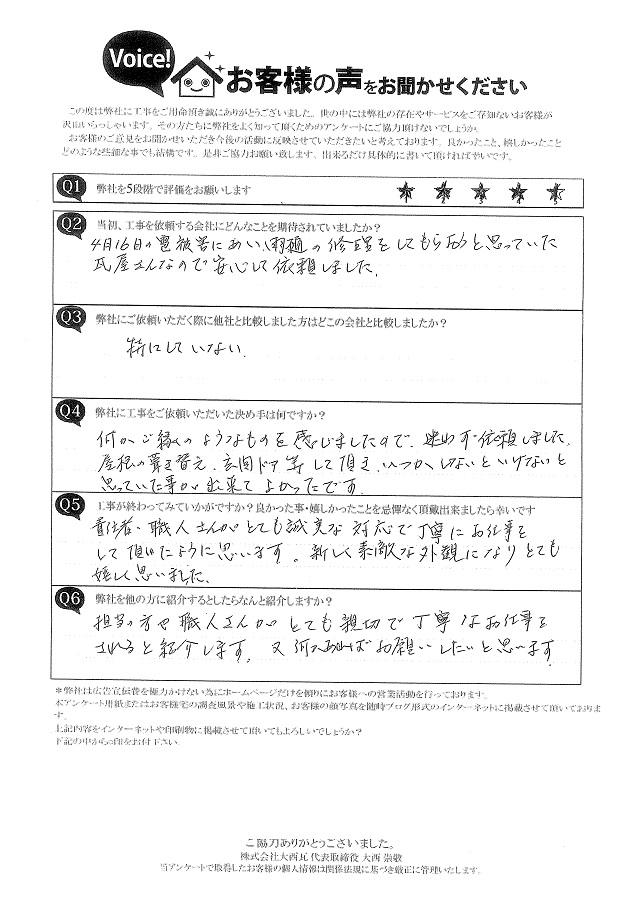 Voice!
お客様の声をお聞かせください
この度は弊社に工事をご用命頂き誠にありがとうございました。世の中には弊社の存在やサービスをご存知ないお客様が
沢山いらっしゃいます。その方たちに弊社をよく知って頂くためのアンケートにご協力頂けないでしょうか。
お客様のご意見をお聞かせいただき今後の活動に反映させていただきたいと考えております。良かったこと、嬉しかったこと
どのような些細な事でも結構です。是非ご協力お願い致します。出来るだけ具体的に書いて頂ければ幸いです。
Q1 弊社を5段階で評価をお願いします
Q2 当初、工事を依頼する会社にどんなことを期待されていましたか？
4月16日の雹被害にあい、雨樋の修理をしてもらおうと思っていた
瓦屋さんなので安心して依頼しました。
Q3 弊社にご依頼いただく際に他社と比較しました方はどこの会社と比較しましたか？
特にしていない。
Q4 弊社に工事をご依頼いただいた決め手は何ですか？
何かご縁のようなものを感じましたので、迷わず依頼しました。
屋根の葺き替え、玄関ドア等して頂き、いつかしないといけないと
思っていた事が出来てよかったです。
Q5 工事が終わってみていかがですか？良かった事・嬉しかったことを忌憚なく頂戴出来ましたら幸いです
責任者、職人さんがとても誠実な対応で丁寧にお仕事を
して頂けたように思います。新しく素敵な外観になりとても
嬉しく思いました。
Q6 弊社を他の方に紹介するとしたらなんと紹介しますか？
担当の方や職人さんがとても親切で丁寧なお仕事を
されると紹介します。又何かあればお願いしたいと思います。
＊弊社は広告宣伝費を極力かけない為にホームページだけを頼りにお客様への営業活動を行っております。
本アンケート用紙またはお客様宅の調査風景や施工状況、お客様の顔写真を随時ブログ形式のインターネットに掲載させて頂いておりま
す。
上記内容をインターネットや印刷物に掲載させて頂いてもよろしいでしょうか？
下記の中から○印をお付下さい。
ご協力ありがとうございました。
株式会社大西瓦 代表取締役 大西 崇敬
当アンケートで取得したお客様の個人情報は関係法規に基づき厳正に管理いたします。